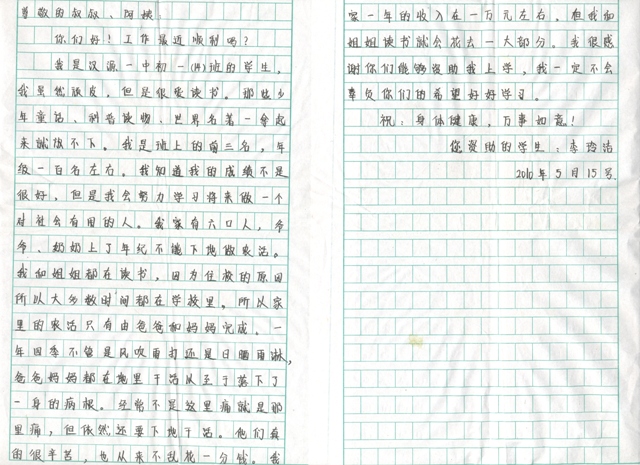 尊敬的叔叔、阿姨：
你们好！工作最近顺利吗？
我是汉源一中初一(14)班的学生，
我虽然顽皮，但是很爱读书。那些少
年童话、科普读物、世界名著一拿起
来就放不下。我是班上的前三名，年
级一百名左右。我知道我的成绩不是
很好，但是我会努力学习将来做一个
对社会有用的人。我家有六口人，爷
爷、奶奶上了年纪不能下地做农活。
我和姐姐都在读书，因为住校的原因
所以大多数时间都在学校里。所以家
里的农活只有由爸爸和妈妈完成。一
年四季不管是风吹雨打还是日晒雨淋，
爸爸妈妈都在地里干活以至于落下了
一身的病根。经常不是这里痛就是那
里痛，但依然还要下地干活。他们真
的很辛苦，也从来不乱花一分钱。我
家一年的收入在一万元左右，但我和
姐姐读书就会花去一大部分。我很感
谢你们能够资助我上学，我一定不会
辜负你们的希望好好学习。
祝：身体健康，万事如意！
您资助的学生：李洁
2010年5月15号